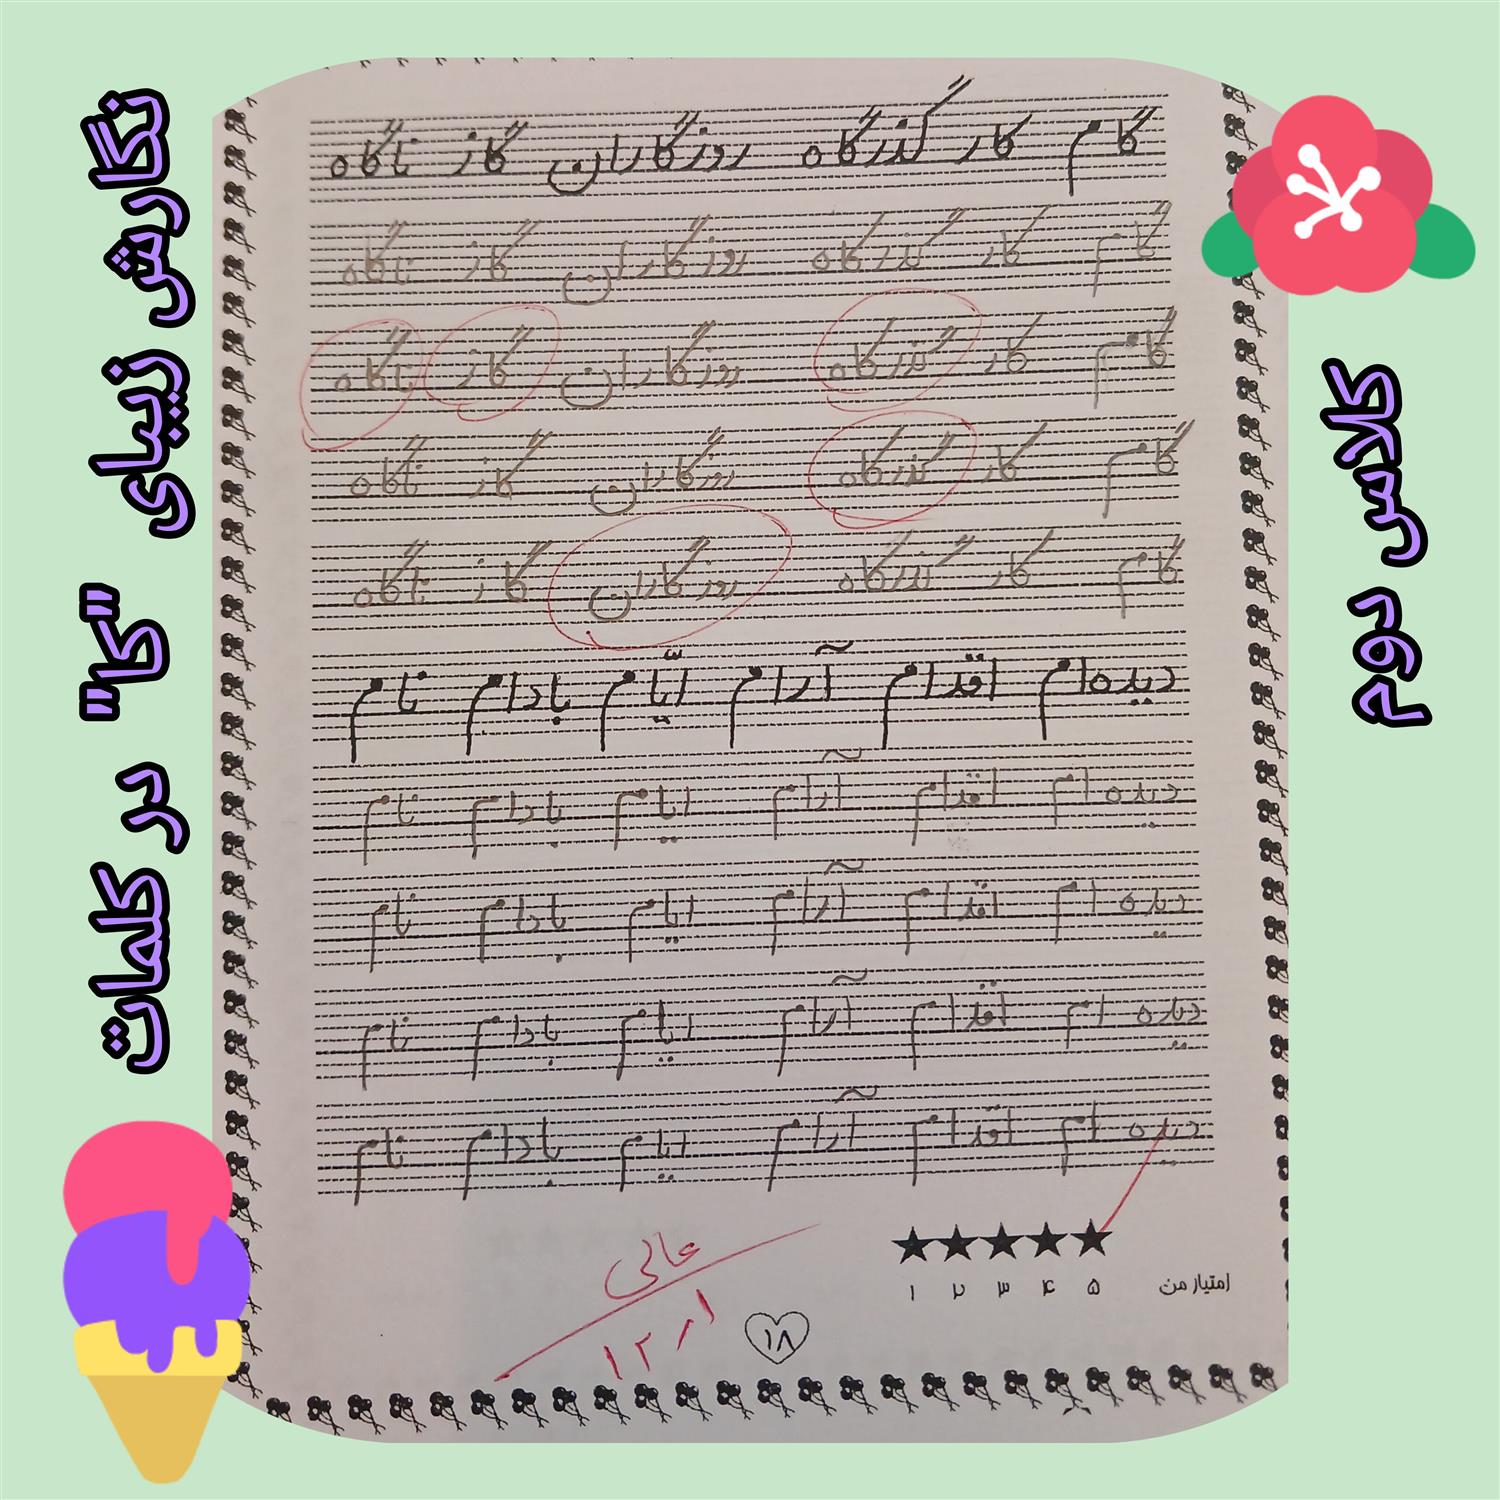 نگارش زیبای "کا" در کلمات
کلاس دوم
گام کار گذرگاه روزگاران گاز ناگاه
گام کار گذرگاه روزگاران گاز ناگاه
گام کار گذرگاه روزگاران گاز ناگاه
گام کار گذرگاه روزگاران گاز ناگاه
گام کار گذرگاه روزگاران گاز ناگاه
دیده‌ام اقدام آرام ایّام بادام نام
دیده ام اقدام آرام ایام بادام نام
دیده ام اقدام آرام ایام بادام نام
دیده ام اقدام آرام ایام بادام نام
دیده ام اقدام آرام ایام بادام نام
امتیاز من ۵ ۴ ۳ ۲ ۱
عالی
۱۸